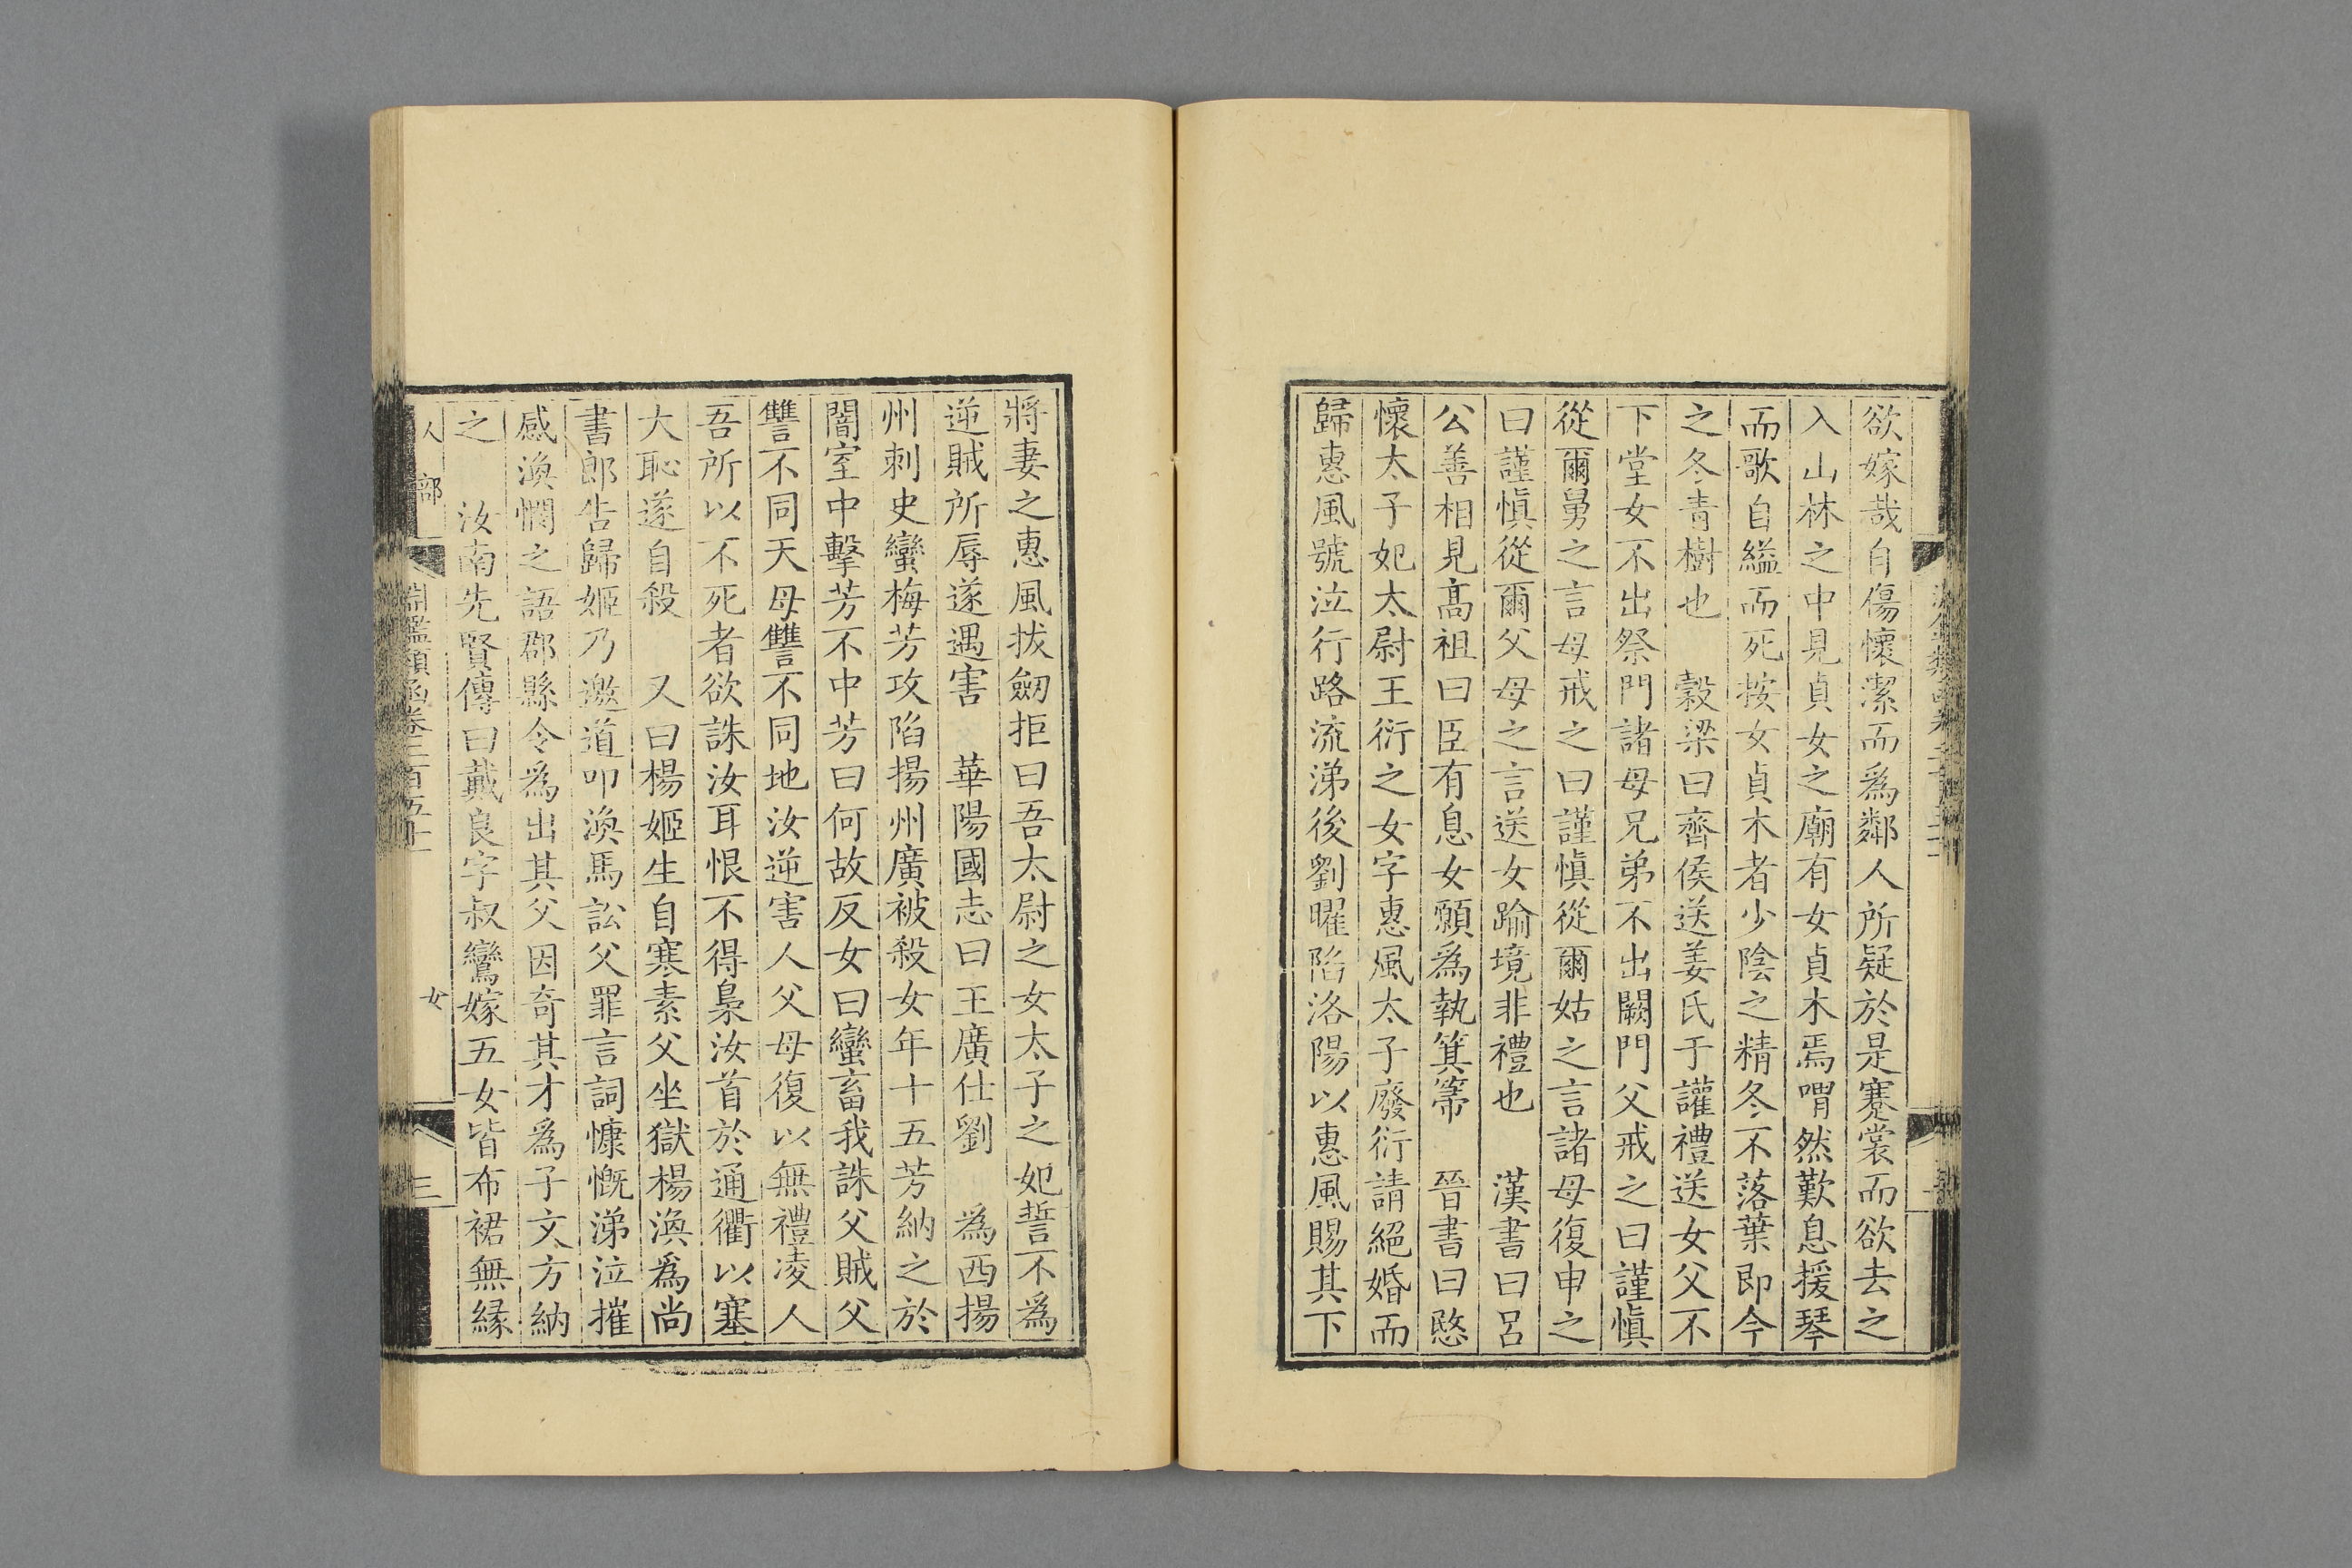 欲嫁哉自傷懷潔而爲鄰人所疑於是蹇裳而欲去之
入山林之中見貞女之廟有女貞木焉喟然歎息援琴
而歌自縊而死按女貞木者少陰之精冬不落葉即今
之冬青樹也　穀梁曰齊侯送姜氏于讙禮送女父不
下堂女不出祭門諸母兄弟不出闕門父戒之曰謹愼
從爾舅之言母戒之曰謹愼從爾姑之言諸母復申之
曰謹愼從爾父母之言送女踰境非禮也　漢書曰呂
公善相見髙祖曰臣有息女願爲執箕箒　晉書曰愍
懷太子妃太尉王衍之女字惠風太子廢衍請絕婚而
歸惠風號泣行路流涕後劉曜陷洛陽以惠風賜其下
將妻之惠風拔劒拒曰吾太尉之女太子之妃誓不爲
逆賊所辱遂遇害　華陽國志曰王廣仕劉　爲西揚
州刺史蠻梅芳攻陷揚州廣被殺女年十五芳納之於
闇室中擊芳不中芳曰何故反女曰蠻畜我誅父賊父
讐不同天母讐不同地汝逆害人父母復以無禮凌人
吾所以不死者欲誅汝耳恨不得梟汝首於通衢以塞
大恥遂自殺　又曰楊姬生自寒素父坐獄楊渙爲尚
書郎告歸姬乃邀道叩渙馬訟父罪言詞慷慨涕泣摧
感渙憫之語郡縣令爲出其父因奇其才爲子文方納
之　汝南先賢傳曰戴良字叔鸞嫁五女皆布裙無緣
人部　淵鑑類函卷二百五十　女　三